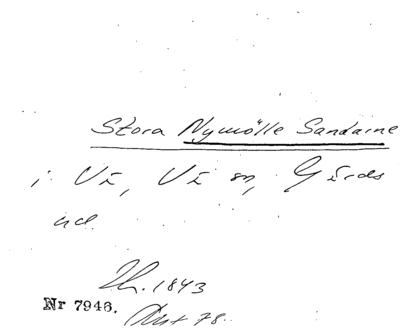 Stora Nymölle Sandarne
i Vä, Vä sn, Gärds
hd.
1843
Nr 7946.
78.